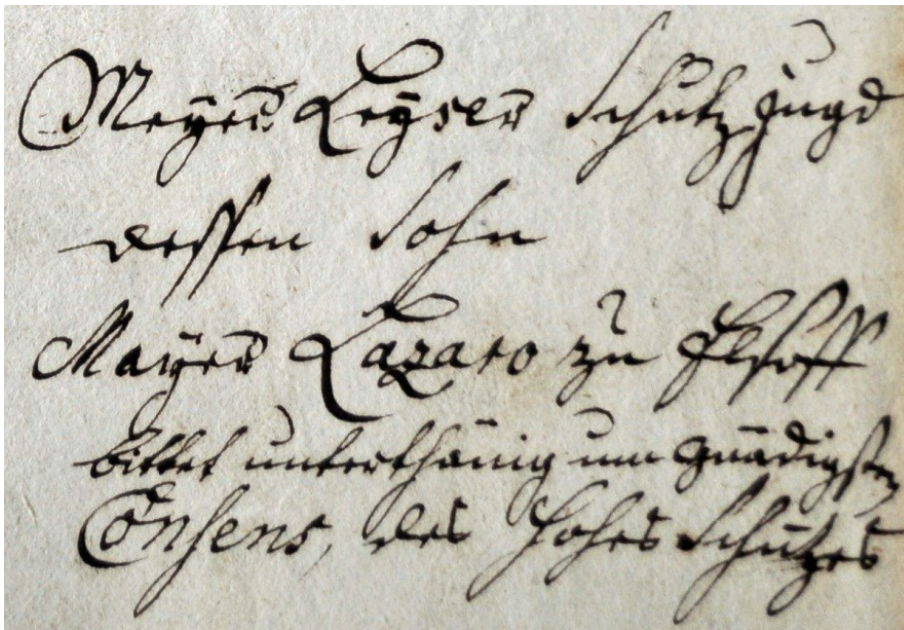 Meyer Leyser Schutz Jugd
dessen Sohn
Mayer Lazaro zu Elsoff
bittet unterthänig um gnädigsten
Consens, des Hohes Schutzes